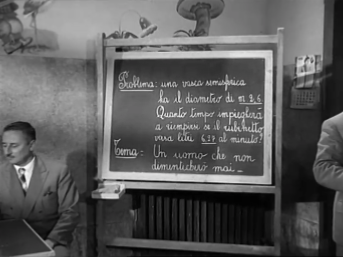 Problema: una vasca semisferica
ha il diametro di m 2,6
Quanto tempo impiegherà
a riempirsi se il rubinetto
versa litri 6,27 al minuto?
Tema: Un uomo che non
dimenticherò mai...